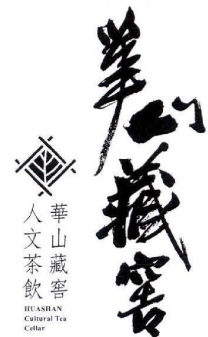 華山藏窖
華山藏窖
人文茶飲
HUASHAN
Cultural Tea
Cellar